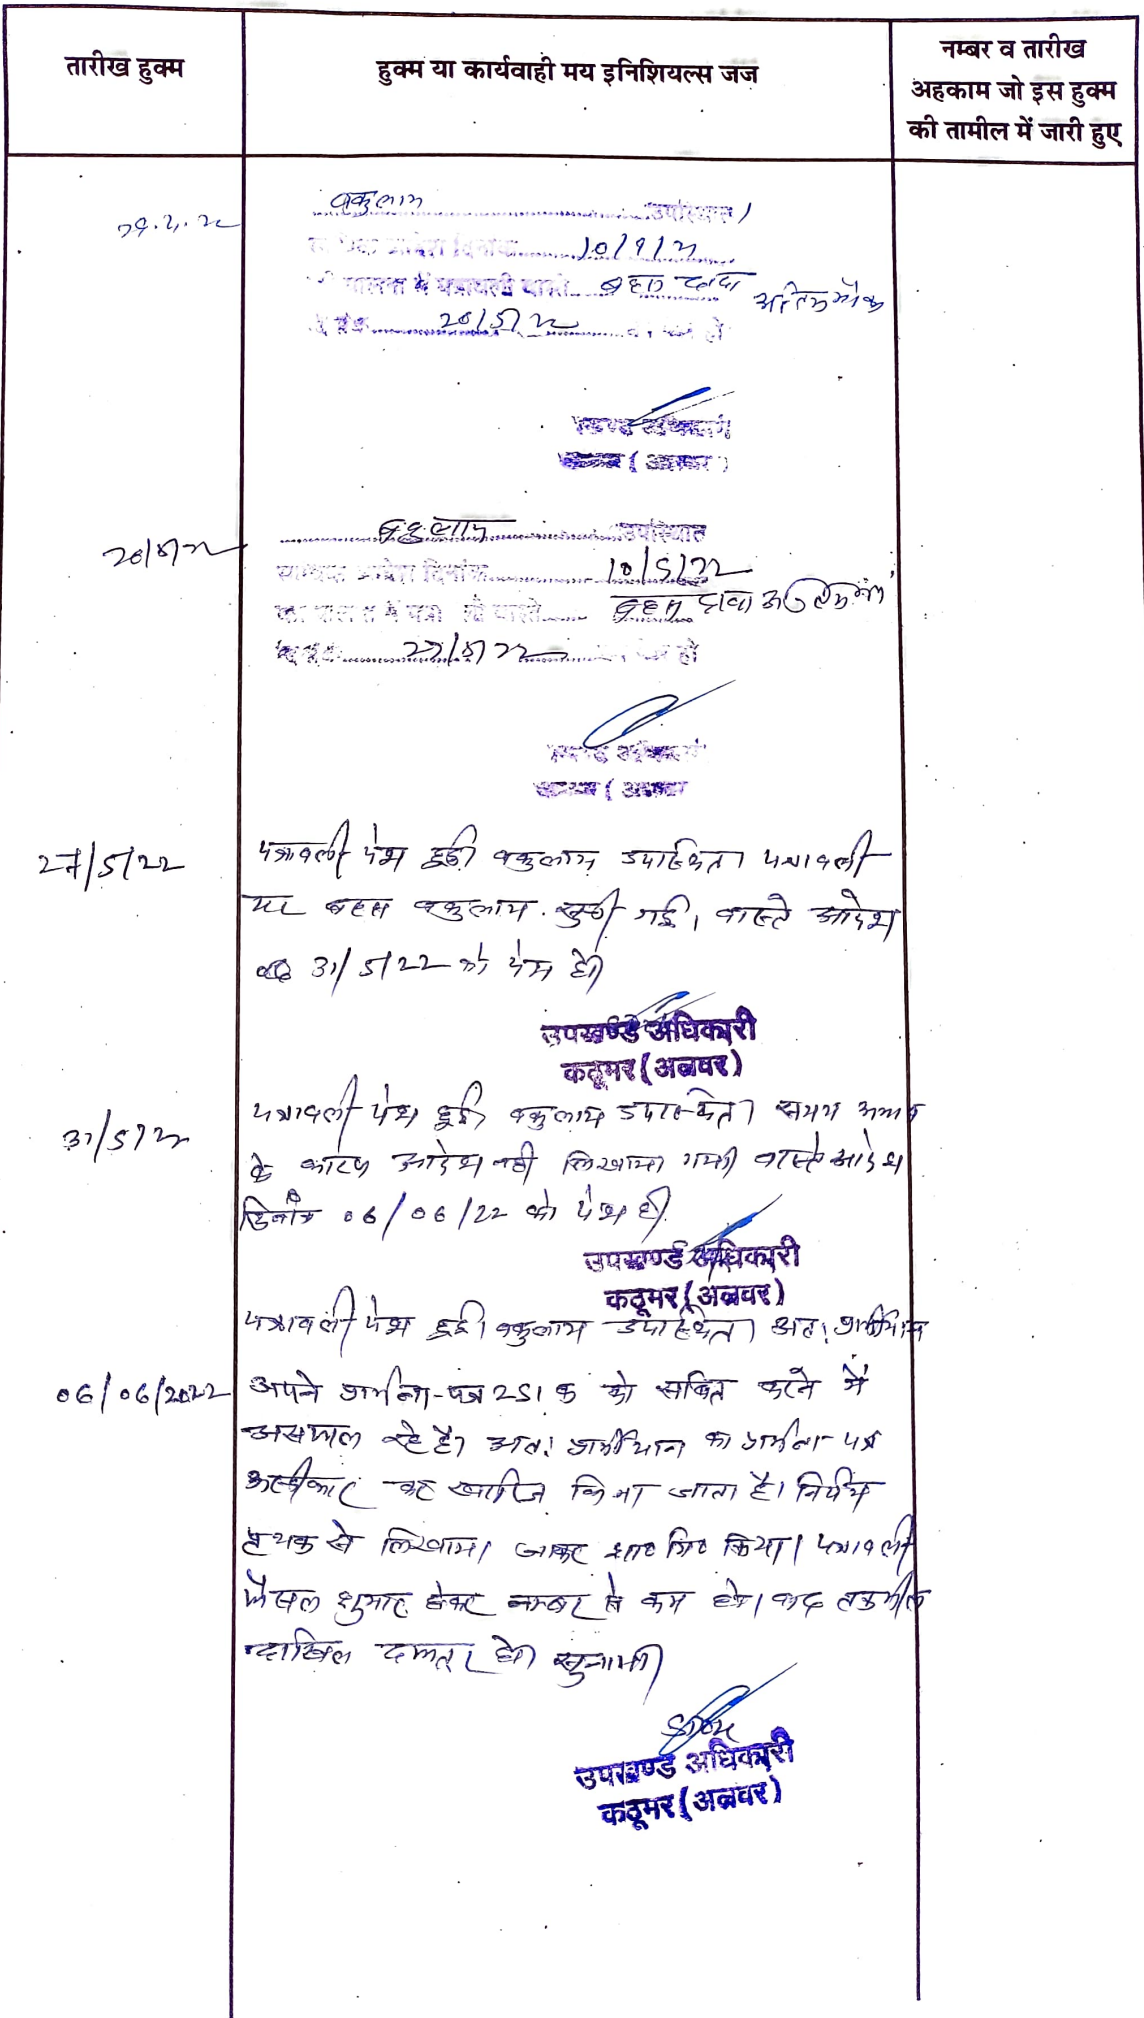 तारीख हुक्म
हुक्म या कार्यवाही मय इनिशियल्स जज
नम्बर व तारीख
अहकाम जो इस हुक्म
की तामील में जारी हुए
वकुलाय उपस्थित।
आदेश दिनांक
में पत्रावली वास्ते बहस दावा
20/5/22
(अलवर)
20/5/22
वकुलाय उपस्थित
आदेश दिनांक 10/5/22
वास्ते बहस दावा
27/5/22 हो
27/5/22
पत्रावली पेश हुई। वकुलाय उपस्थित। पत्रावली
पर बहस वकुलाय सुनी गई। वास्ते आदेश
31/5/22 को पेश हो।
उपखण्ड अधिकारी
कठूमर (अलवर)
31/5/22
पत्रावली पेश हुई। वकुलाय उपस्थित। समय अभाव
के कारण आदेश नही लिखाया गया। वास्ते आदेश
दिनांक 06/06/22 को पेश हो।
उपखण्ड अधिकारी
कठूमर (अलवर)
06/06/2022
पत्रावली पेश हुई। वकुलाय उपस्थित। अतः प्रार्थीयान
अपने प्रार्थना-पत्र 251 क को साबित करने में
असफल रहे है। अतः प्रार्थीयान का प्रार्थना पत्र
अस्वीकार कर खारिज किया जाता है। निर्णय
पृथक से लिखाया जाकर शा० मि० किया। पत्रावली
फैसल शुमार होकर नम्बर से कम हो। बाद तकमील
दाखिल दफ्तर हो। सुनाया।
उपखण्ड अधिकारी
कठूमर (अलवर)